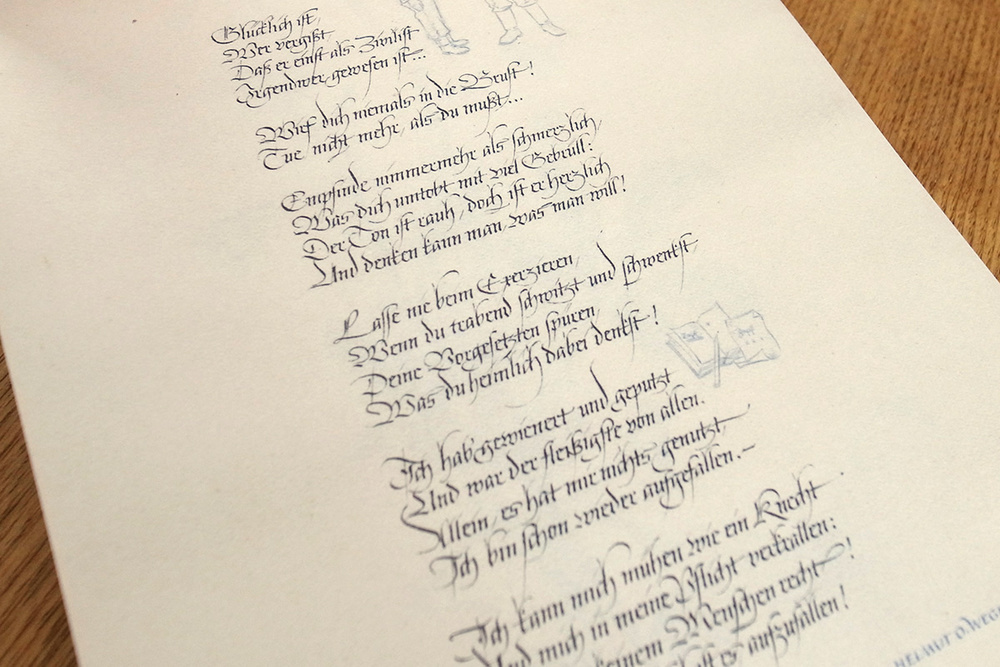 Glücklich ist,
Wer vergißt
Daß er einst als Zivilist
Irgendwer gewesen ist...
Wirf dich niemals in die Brust!
Tue nicht mehr, als du mußt...
Empfinde nimmermehr als schmerzlich,
Was dich umtobt mit viel Gebrüll:
Der Ton ist rauh, doch ist er herzlich
Und denken kann man, was man will!
Lasse nie beim Exerzieren,
Wenn du trabend schwitzt und schwenkst,
Deine Vorgesetzten spüren,
Was du heimlich dabei denkst!
Ich hab' gewienert und geputzt
Und war der fleißigste von allen.
Allein, es hat mir nichts genutzt
Ich bin schon wieder aufgefallen.—
Ich kann mich mühen wie ein Knecht
Und mich in meine Pflicht verkrallen:
keinem Menschen recht!
es aufzufallen!
HELMUT O. WEG